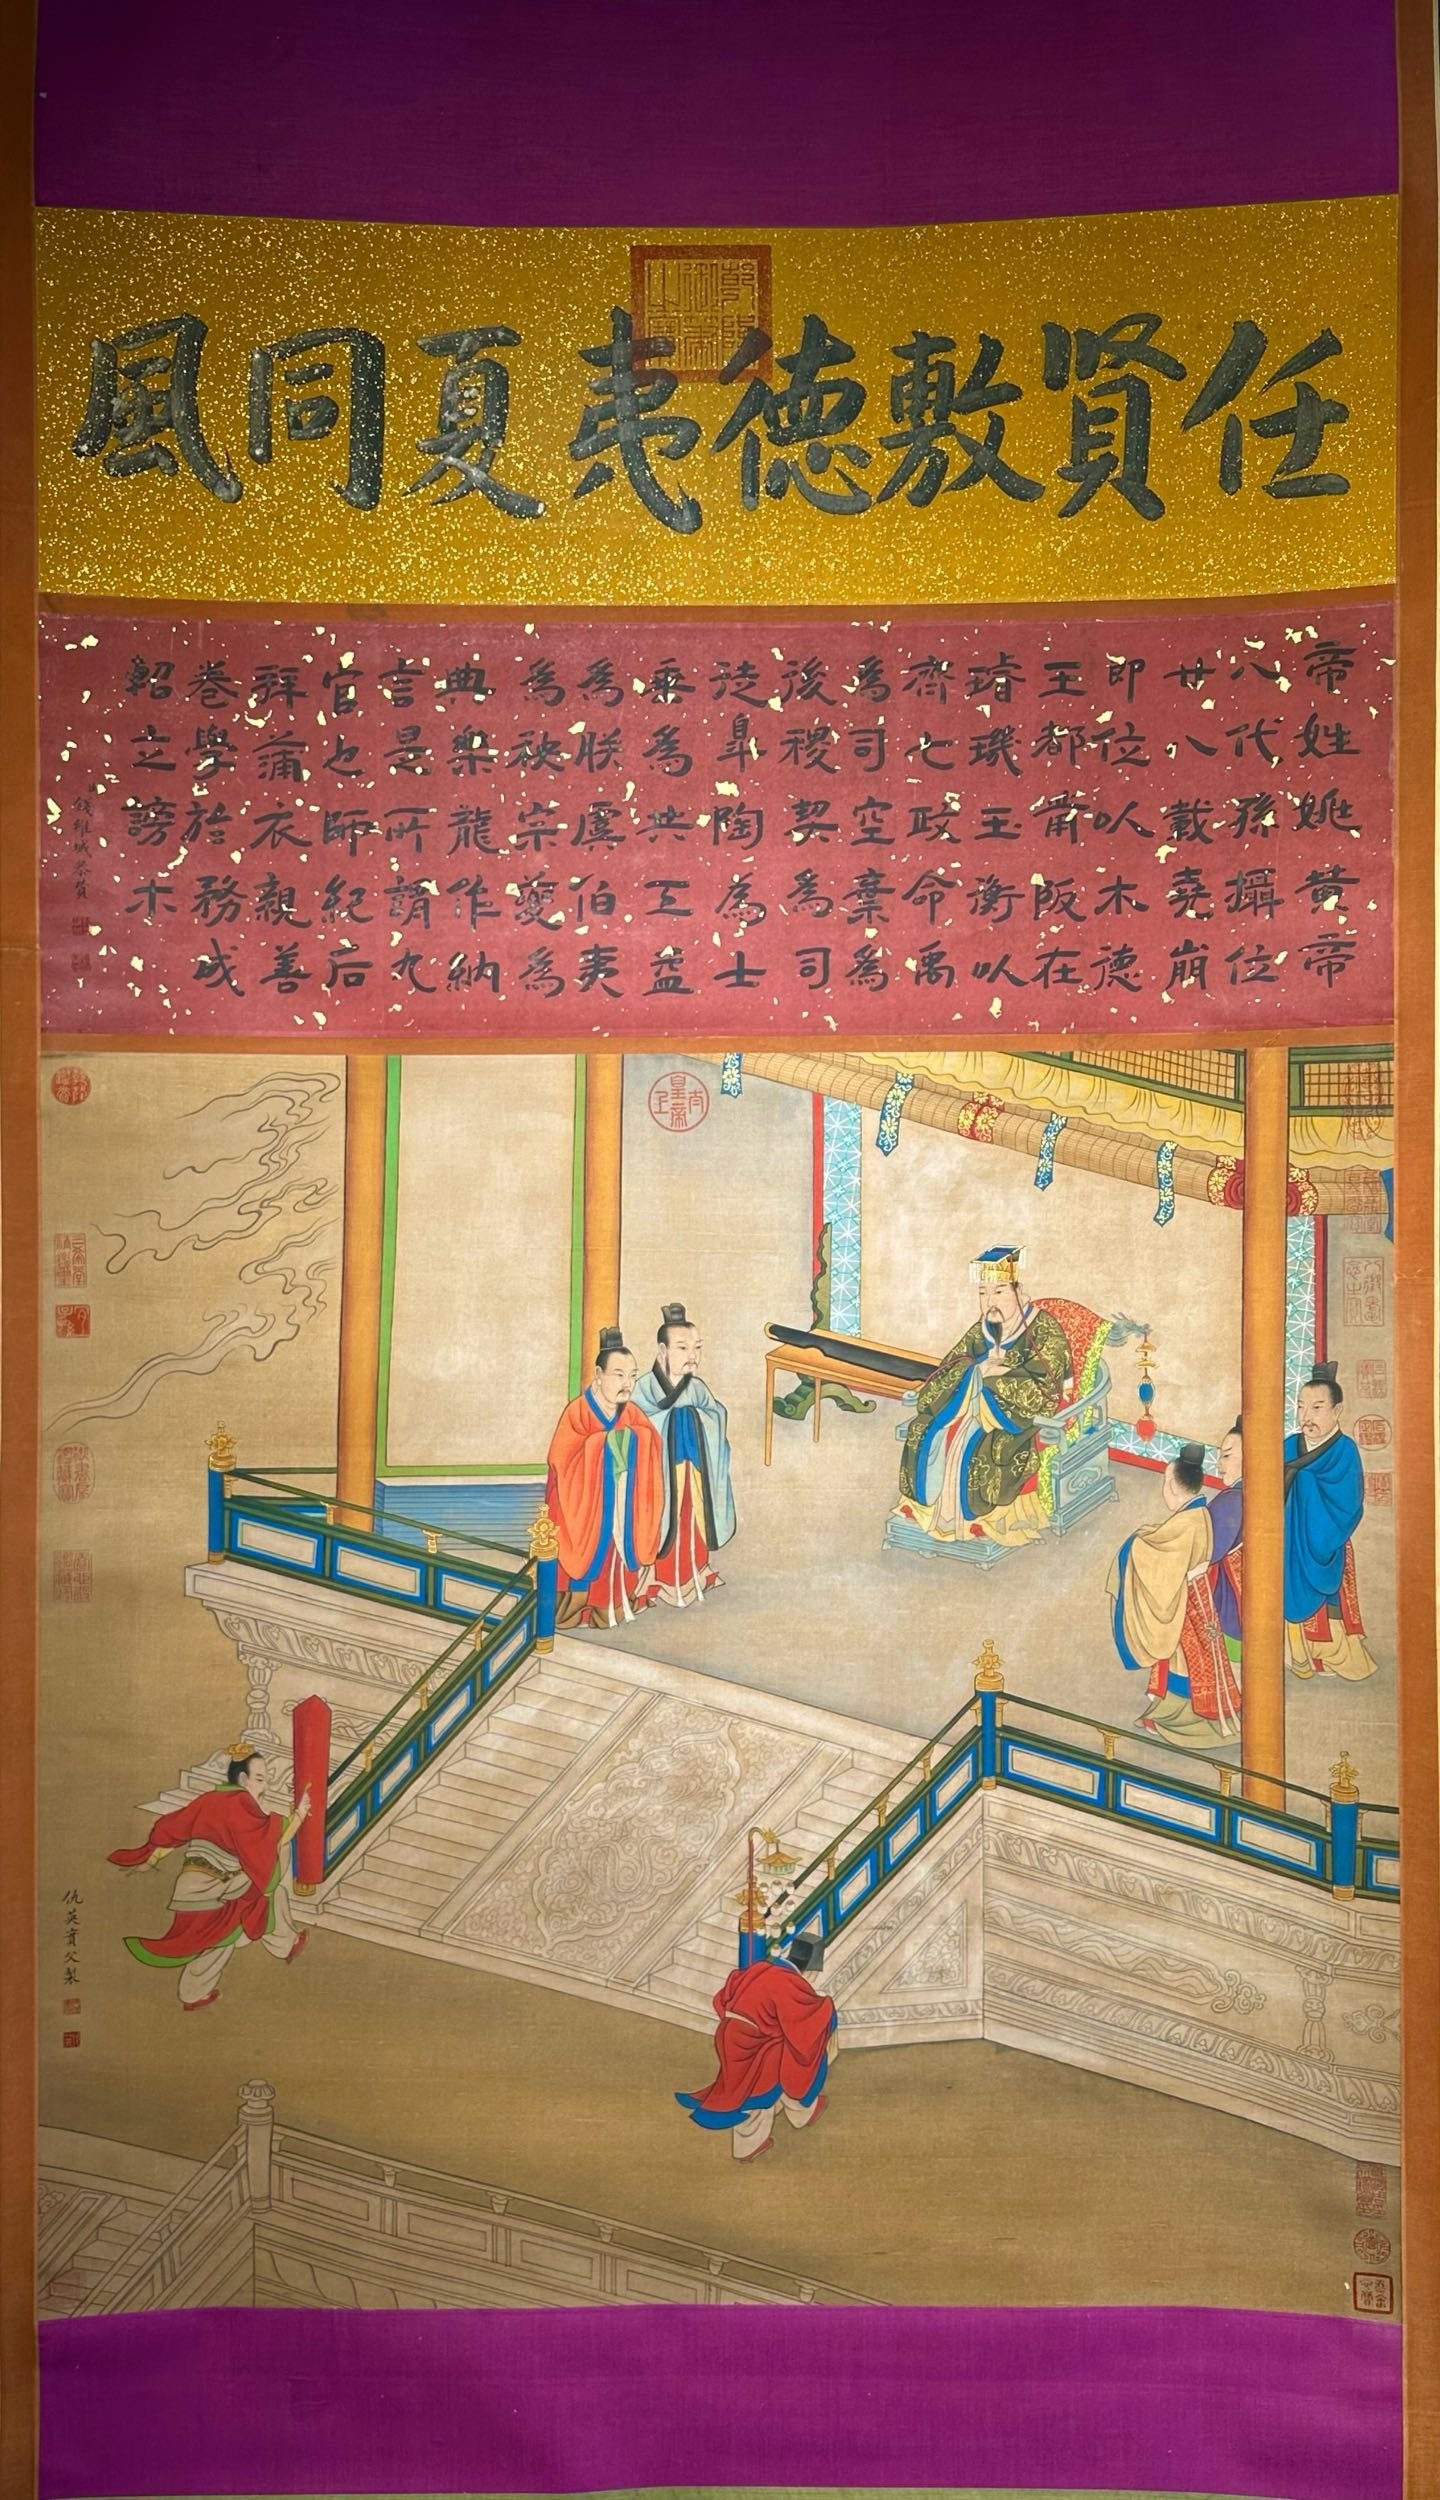 任賢敷德夷夏同風
帝姓姚黃帝
八代孫攝位
廿八載堯崩
即位以木德
王都蒲阪在
璿璣玉衡以
齊七政命禹
為司空棄為
後稷契為司
徒皐陶為士
垂為共工益
為朕虞伯夷
為秩宗夔為
典樂龍作納
言是所謂九
官也師紀后
拜蒲衣親善
卷學於務成
軺立謗木
錢維城恭贊
皇帝
仇英實父製